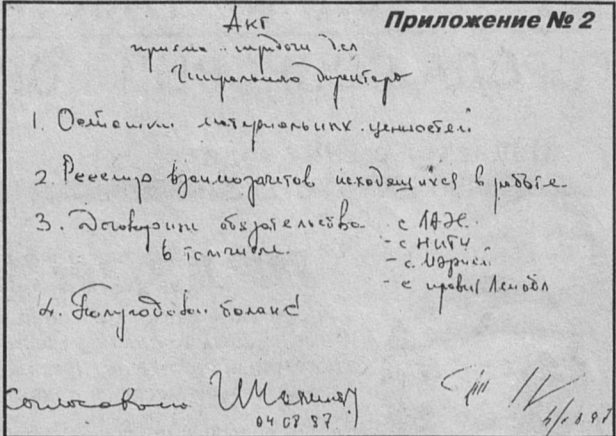 Приложение № 2
Акт
приема - передачи дел
Генерального директора
1. Остатки материальных ценностей
2. Реестр взаимозачетов находящихся в работе
3. Договорные обязательства - с ЛАЭС
в том числе - с НИТИ
- с Мэрией
- с правит. Ленобл
4. Полугодовой баланс
Согласовано
04 08 97